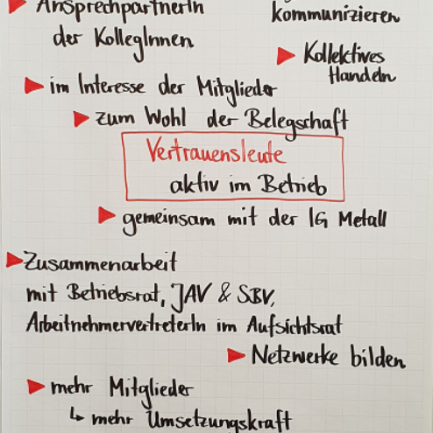 AnsprechpartnerIn
kommunizieren
der KollegInnen
Kollektives
Handeln
im Interesse der Mitglieder
zum Wohl der Belegschaft
Vertrauensleute
aktiv im Betrieb
gemeinsam mit der IG Metall
Zusammenarbeit
mit Betriebsrat, JAV & SBV,
ArbeitnehmervertreterIn im Aufsichtsrat
Netzwerke bilden
mehr Mitglieder
↳ mehr Umsetzungskraft